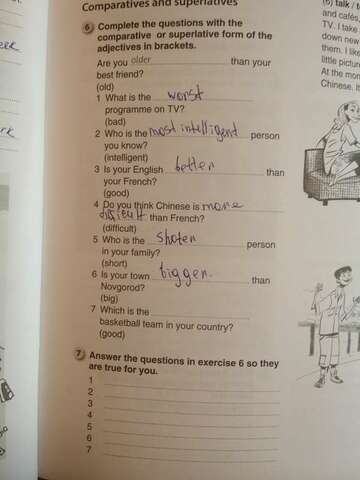 Comparatives and superlatives
6 Complete the questions with the
comparative or superlative form of the
adjectives in brackets.
Are you older than your
best friend?
(old)
1 What is the worst
programme on TV?
(bad)
2 Who is the most intelligend person
you know?
(intelligent)
3 Is your English better than
your French?
(good)
4 Do you think Chinese is more
difficult than French?
(difficult)
5 Who is the shoter person
in your family?
(short)
6 Is your town bigger. than
Novgorod?
(big)
7 Which is the
basketball team in your country?
(good)
7 Answer the questions in exercise 6 so they
are true for you.
1
2
3
4
5
6
7
(6) talk / t
and cafés
TV. I take
down new
them. I like
little picture
At the mom
Chinese. It